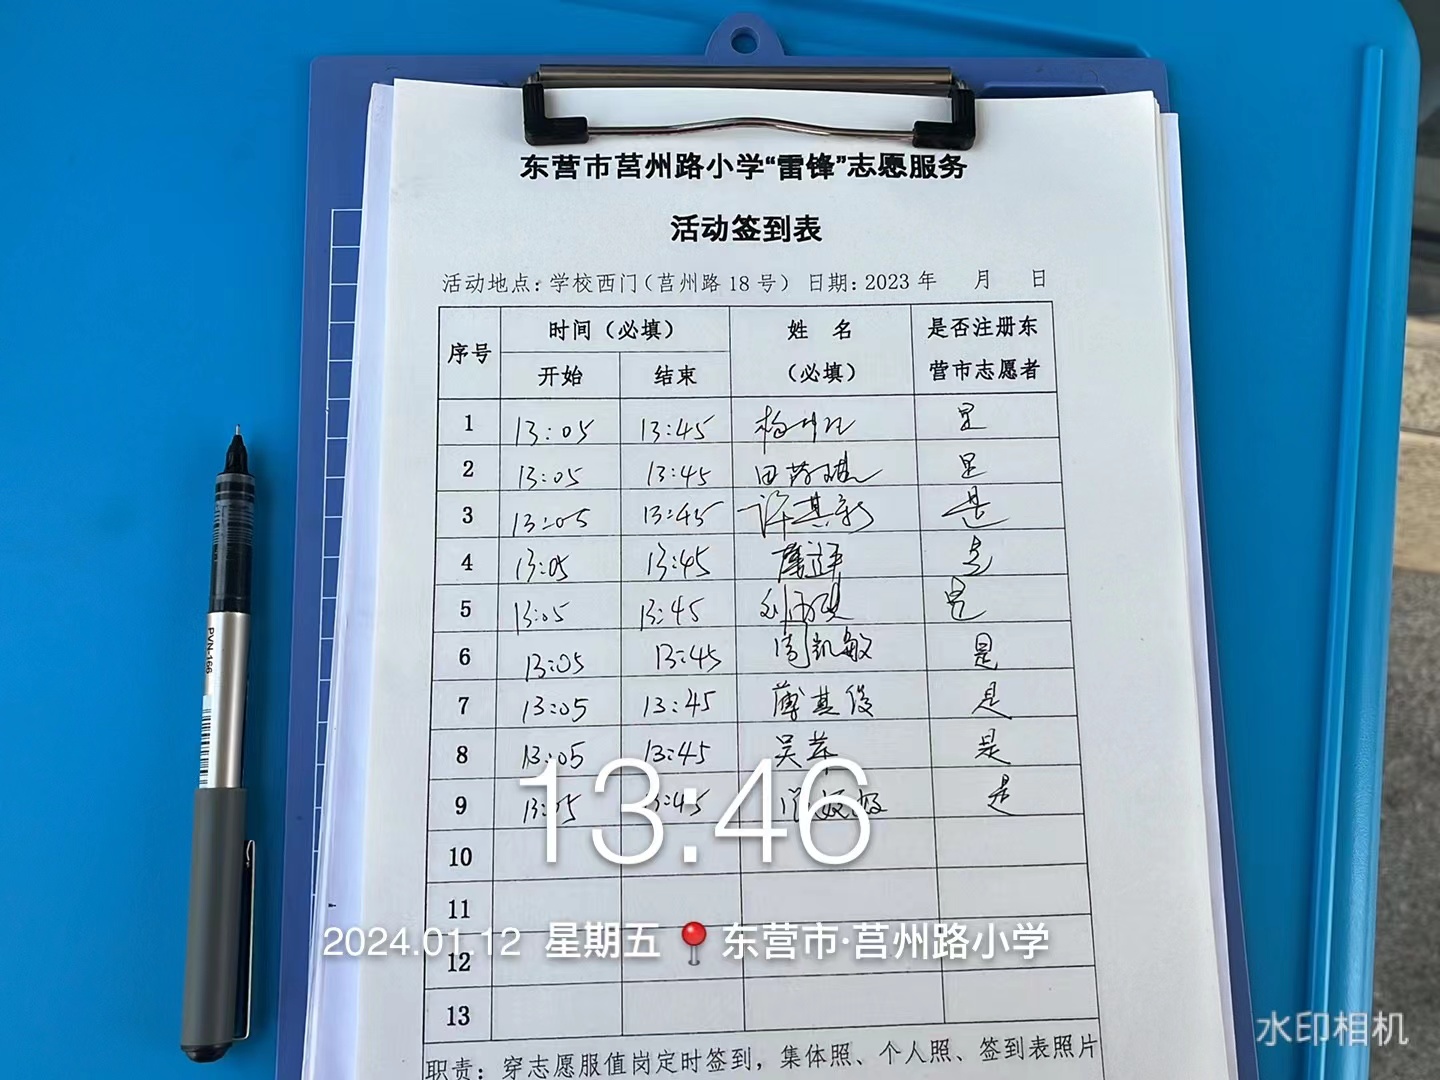 东营市莒州路小学“雷锋”志愿服务
活动签到表
活动地点：学校西门（莒州路 18 号） 日期：2023 年 月 日
序号 时间（必填） 姓 名（必填） 是否注册东营市志愿者
开始 结束
1 13:05 13:45 是
2 13:05 13:45 田 是
3 13:05 13:45 许其新 是
4 13:05 13:45 是
5 13:05 13:45 刘 是
6 13:05 13:45 周凯敏 是
7 13:05 13:45 薄其俊 是
8 13:05 13:45 吴苹 是
9 13:05 13:45 是
10
11
12
13
职责：穿志愿服值岗定时签到，集体照、个人照、签到表照片
13:46
2024.01.12 星期五 东营市·莒州路小学
水印相机
PVN-166